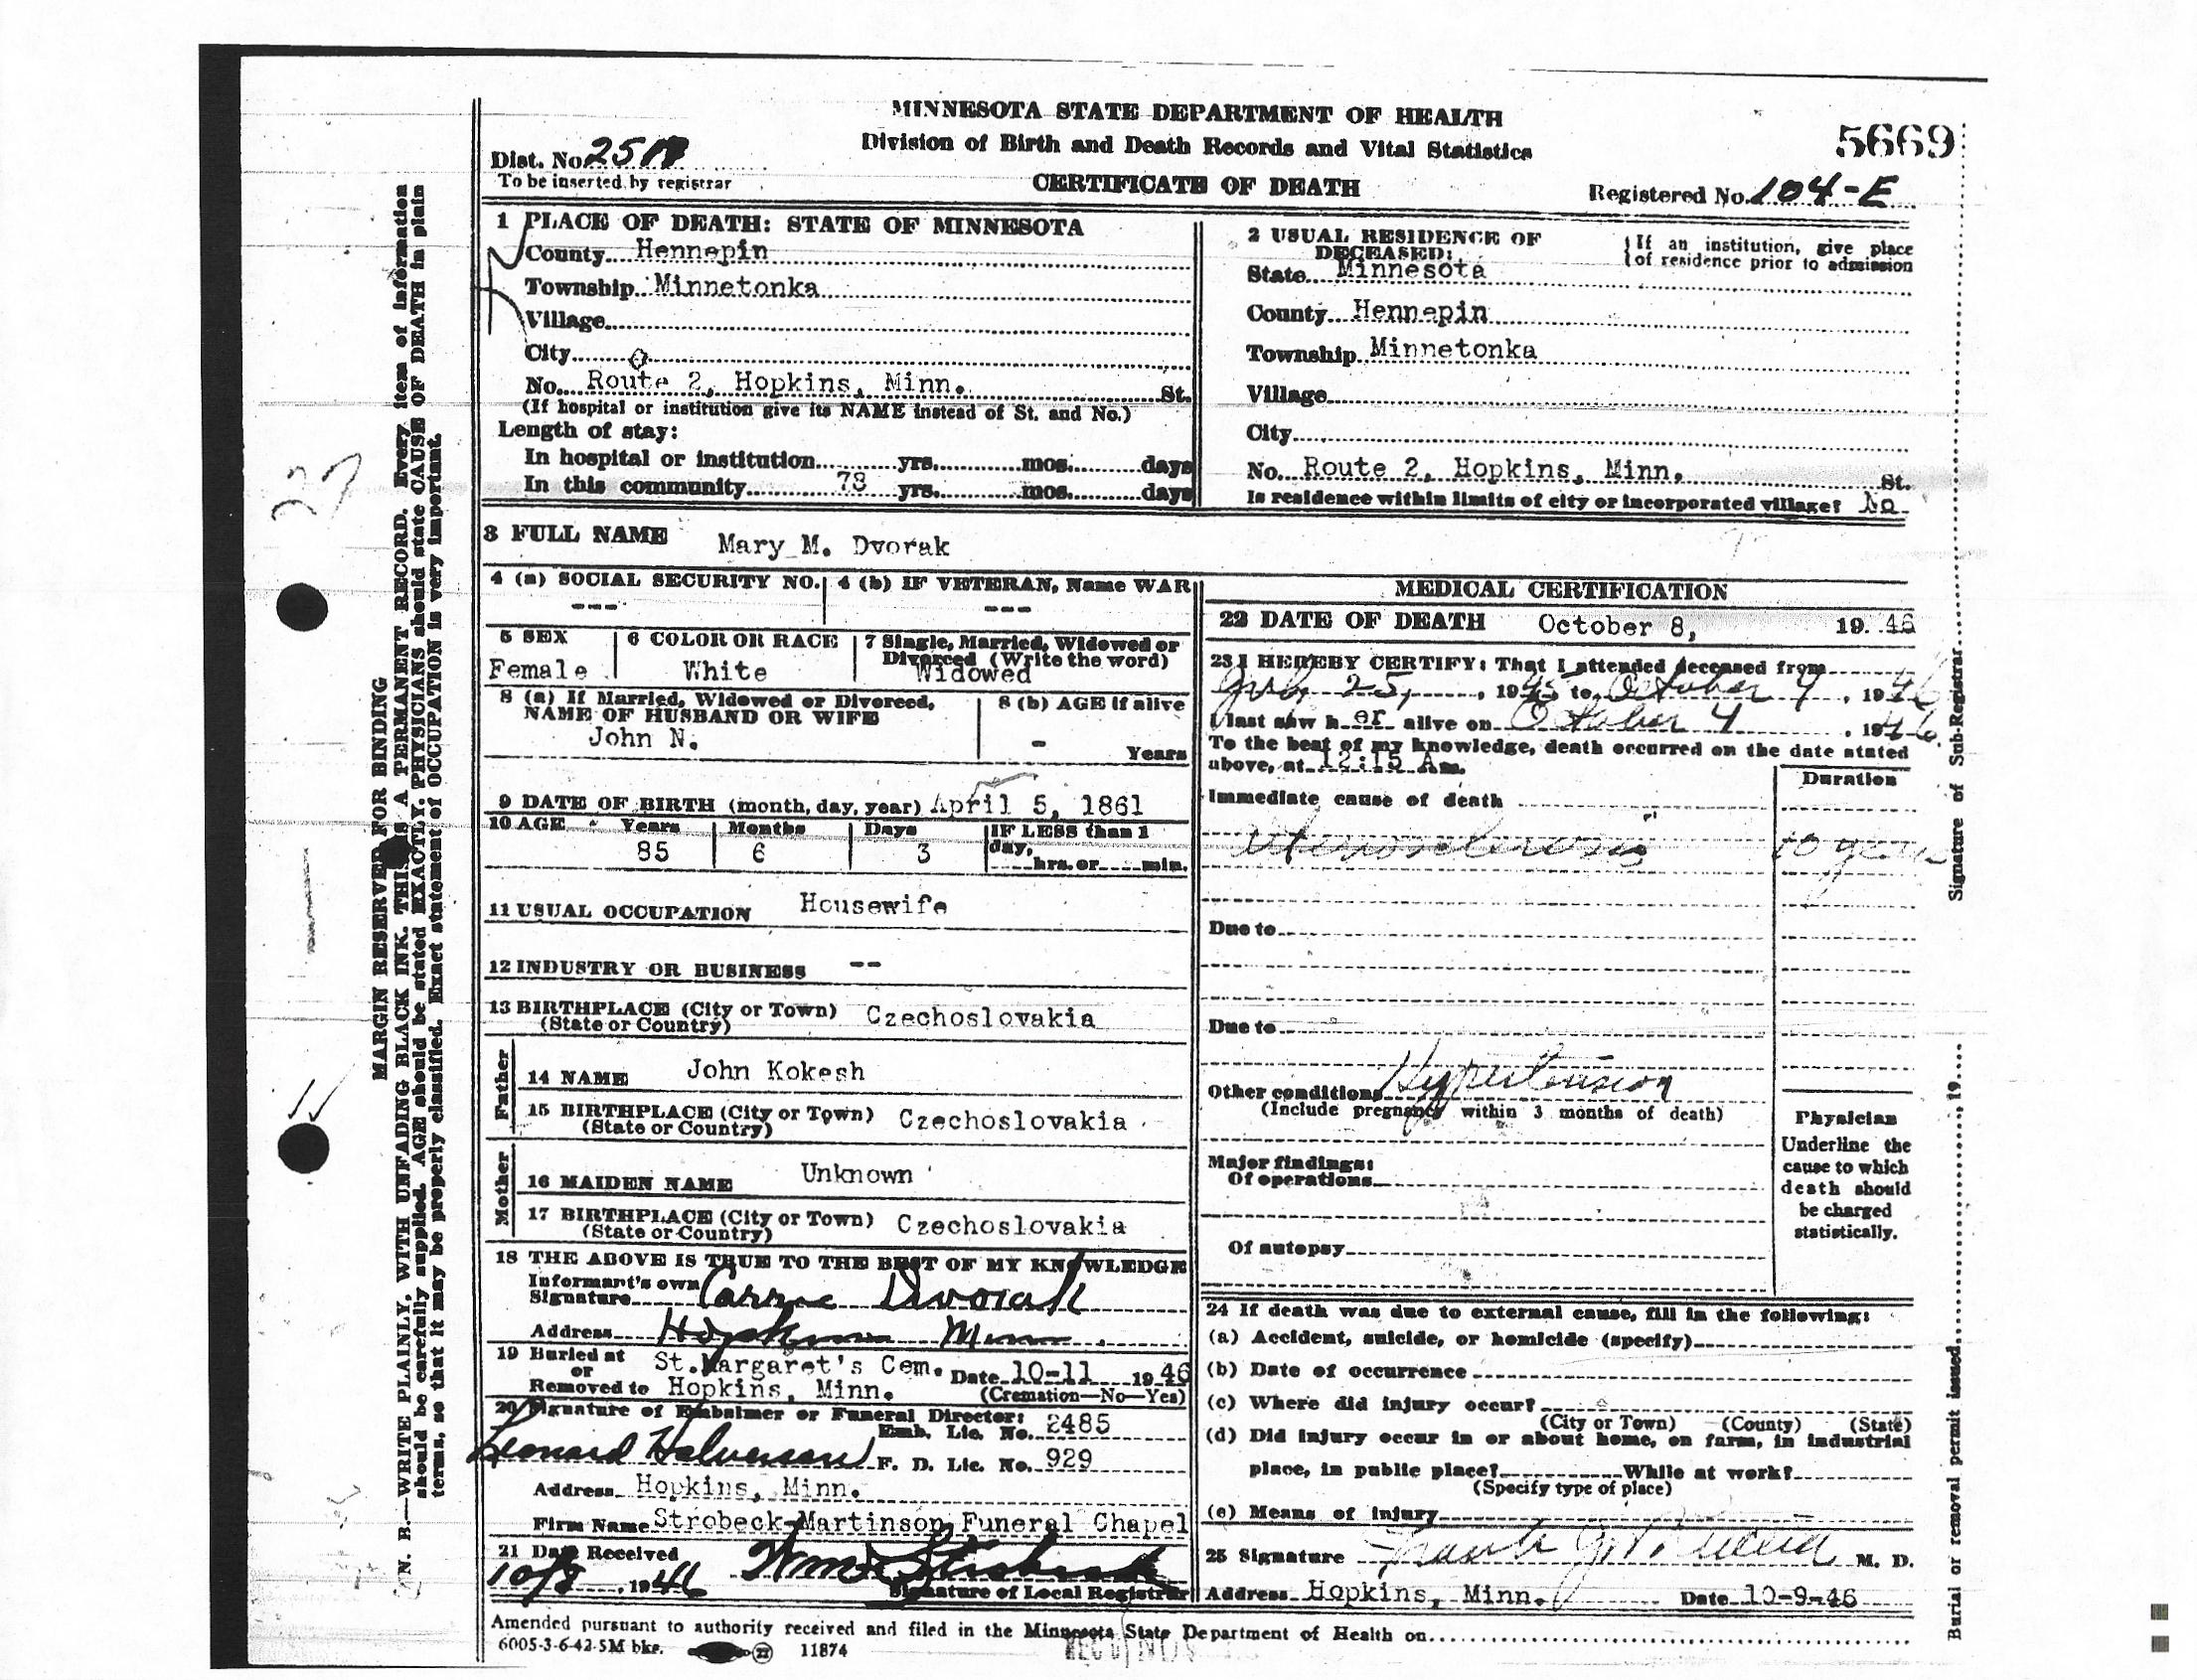 MINNESOTA STATE DEPARTMENT OF HEALTH
Division of Birth and Death Records and Vital Statistics
CERTIFICATE OF DEATH
5669
Dist. No.
To be inserted by registrar
Registered No. 104-E
1 PLACE OF DEATH: STATE OF MINNESOTA
County Hennepin
Township Minnetonka
Village
City
No. Route 2, Hopkins, Minn. St.
(If hospital or institution give its NAME instead of St. and No.)
Length of stay:
In hospital or institution yrs. mos. days
In this community 78 yrs. mos. days
2 USUAL RESIDENCE OF DECEASED:
If an institution, give place
of residence prior to admission
State Minnesota
County Hennepin
Township Minnetonka
Village
City
No. Route 2, Hopkins, Minn. St.
Is residence within limits of city or incorporated village? No
3 FULL NAME Mary M. Dvorak
4 (a) SOCIAL SECURITY NO. 4 (b) IF VETERAN, Name WAR
--- ---
5 SEX 6 COLOR OR RACE 7 Single, Married, Widowed or
Divorced (Write the word)
Female White Widowed
8 (a) If Married, Widowed or Divorced,
NAME OF HUSBAND OR WIFE
John N.
8 (b) AGE if alive
- Years
9 DATE OF BIRTH (month, day, year) April 5, 1861
10 AGE Years Months Days IF LESS than 1
85 6 3 day,
hrs. or min.
11 USUAL OCCUPATION Housewife
12 INDUSTRY OR BUSINESS --
13 BIRTHPLACE (City or Town) Czechoslovakia
(State or Country)
Father
14 NAME John Kokesh
15 BIRTHPLACE (City or Town) Czechoslovakia
(State or Country)
Mother
16 MAIDEN NAME Unknown
17 BIRTHPLACE (City or Town) Czechoslovakia
(State or Country)
18 THE ABOVE IS TRUE TO THE BEST OF MY KNOWLEDGE
Informant's own
Signature Carrie Dvorak
Address Hopkins Minn.
19 Buried at St. Margaret's Cem. Date 10-11 1946
or
Removed to Hopkins, Minn. (Cremation—No—Yes)
20 Signature of Embalmer or Funeral Director:
Emb. Lic. No. 2485
Leonard Halverson F. D. Lic. No. 929
Address Hopkins, Minn.
Firm Name Strobeck-Martinson Funeral Chapel
21 Date Received
1946 Wm
Signature of Local Registrar
MEDICAL CERTIFICATION
22 DATE OF DEATH October 8, 19 46
23 I HEREBY CERTIFY: That I attended deceased from
July 25, 1945 to October 7, 1946
I last saw her alive on October 1946
To the best of my knowledge, death occurred on the date stated
above, at 12:15 Am.
Duration
Immediate cause of death
10 years
Due to
Due to
Other conditions Hypertension
(Include pregnancy within 3 months of death)
Physician
Underline the
cause to which
death should
be charged
statistically.
Major findings:
Of operations
Of autopsy
24 If death was due to external cause, fill in the following:
(a) Accident, suicide, or homicide (specify)
(b) Date of occurrence
(c) Where did injury occur?
(City or Town) (County) (State)
(d) Did injury occur in or about home, on farm, in industrial
place, in public place? While at work?
(Specify type of place)
(e) Means of injury
25 Signature M. D.
Address Hopkins, Minn. Date 10-9-46
Amended pursuant to authority received and filed in the Minnesota State Department of Health on
6005-3-6-42-5M bks. 22 11874
MARGIN RESERVED FOR BINDING
N. B.—WRITE PLAINLY, WITH UNFADING BLACK INK. THIS IS A PERMANENT RECORD. Every item of information
should be carefully supplied. AGE should be stated EXACTLY. PHYSICIANS should state CAUSE OF DEATH in plain
terms, so that it may be properly classified. Exact statement of OCCUPATION is very important.
Burial or removal permit issued, 19 Signature of Sub-Registrar